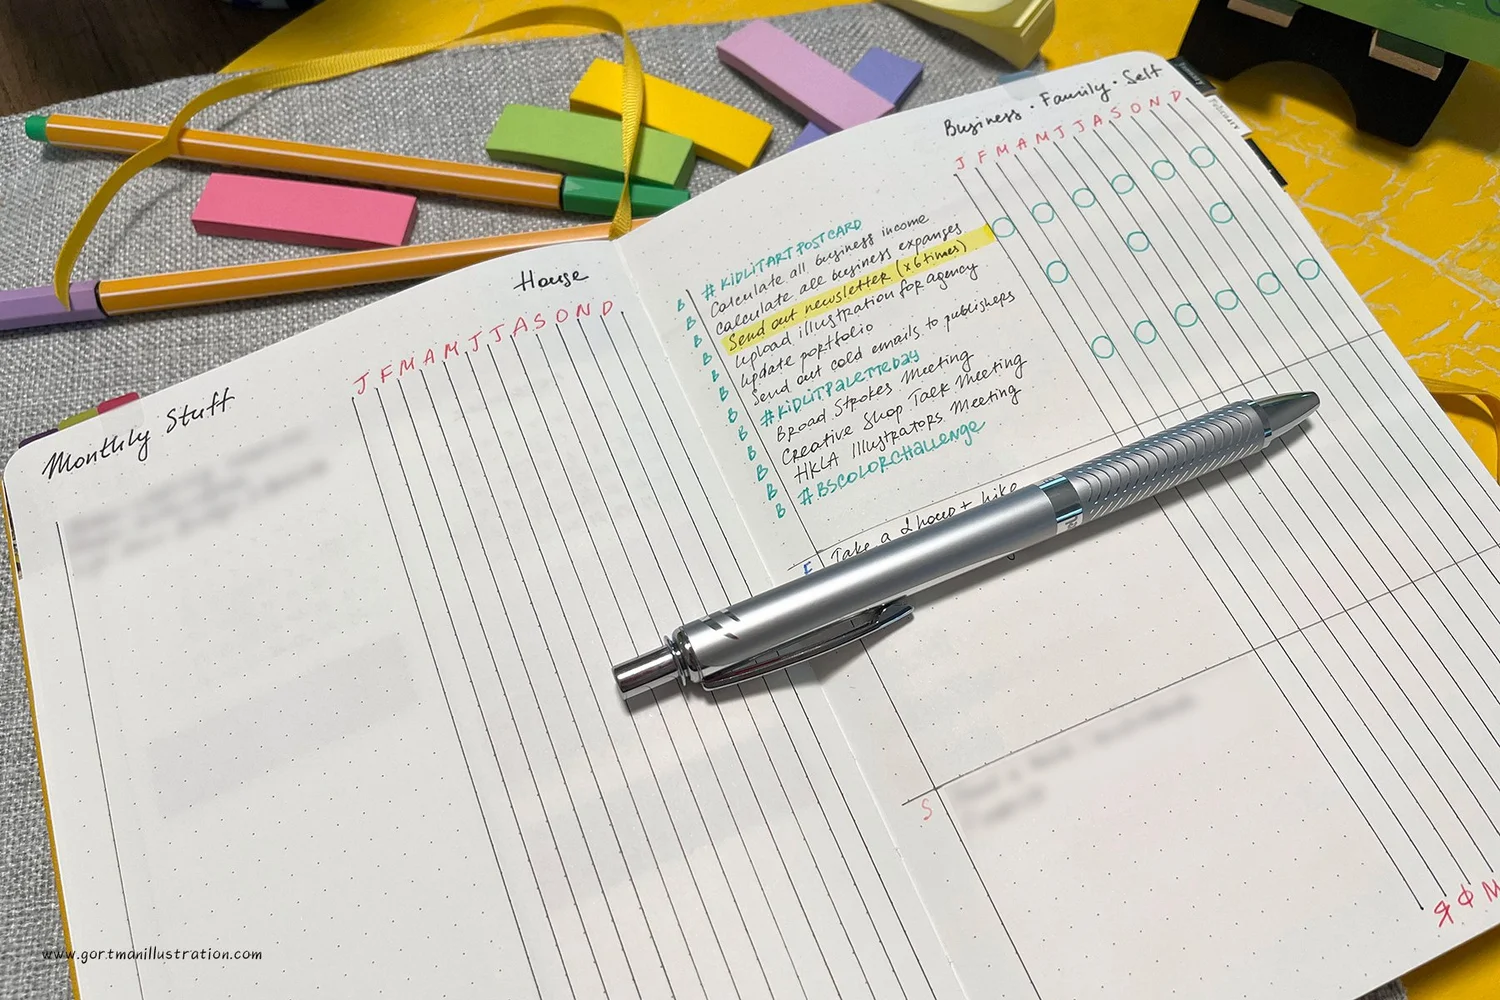 Monthly Stuff
House
J F M A M J J A S O N D
Business · Family · Self
J F M A M J J A S O N D
B #KIDLITARTPOSTCARD
B Calculate all business income
B Calculate all business expanses
B Send out newsletter (x6 times)
B Upload illustration for agency
B Update portfolio
B Send out cold emails to publishers
B #KIDLITPALETTEDAY
B Broad Strokes Meeting
B Creative Shop Talk Meeting
B HKLA Illustrators Meeting
B #BSCOLORCHALLENGE
F Take a 2 hour hike
S
Я Ф М
February
www.gortmanillustration.com